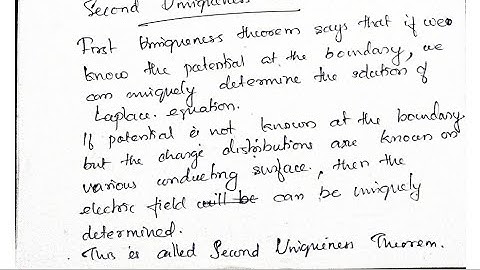 Second Uniqueness
First Uniqueness theorem says that if we
know the potential at the boundary, we
can uniquely determine the solution of
Laplace equation.
If potential is not known at the boundary
but the charge distributions are known on
various conducting surface, then the
electric field will be can be uniquely
determined.
This is called Second Uniqueness Theorem.